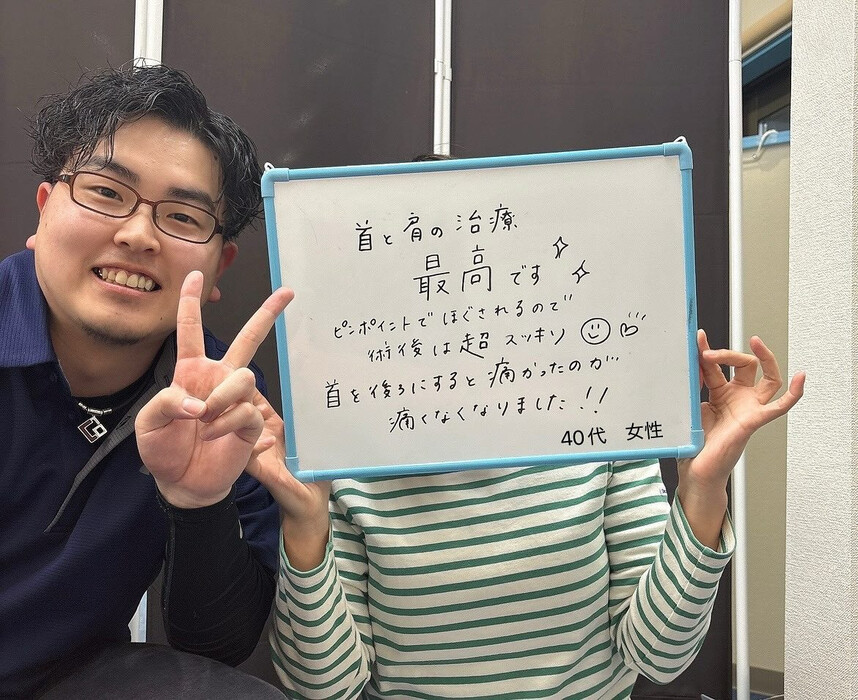 首と肩の治療
最高です
ピンポイントでほぐされるので
術後は超スッキリ
首を後ろにすると痛かったのが
痛くなくなりました!!
40代 女性